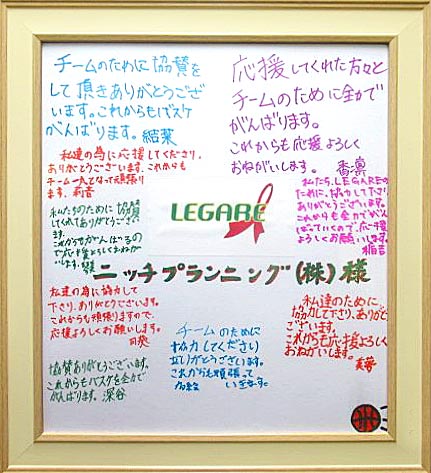 チームのために協賛を
して頂きありがとうござい
ます。これからもバスケ
がんばります。結菜
応援してくれた方々と
チームのために全力で
がんばります。
これからも応援よろしく
おねがいします。香凛
私達の為に応援してくださり、
ありがとうございます。これからも
チーム一丸となって頑張り
ます。莉音
私たちのために協賛
してくれてありがとうござい
ます。
これからもがんばるの
で応援よろしくおねが
いします。
私たち、LEGAREの
ために、協力して下さり
ありがとうございます。
これからも全力でがん
ばっていくので、応援
よろしくお願いします。
LEGARE
ニッチプランニング(株)様
私達の為に協力して
下さり、ありがとうございます。
これからも頑張りますので、
応援よろしくお願いします。
チームのために
協力してください
ありがとうございます。
これからも頑張って
いきます。
私達のために、
協力して下り、ありがとう
ございます。
これからも応援よろしく
おねがいします。
協賛ありがとうございます。
これからもバスケを全力で
がんばります。深谷